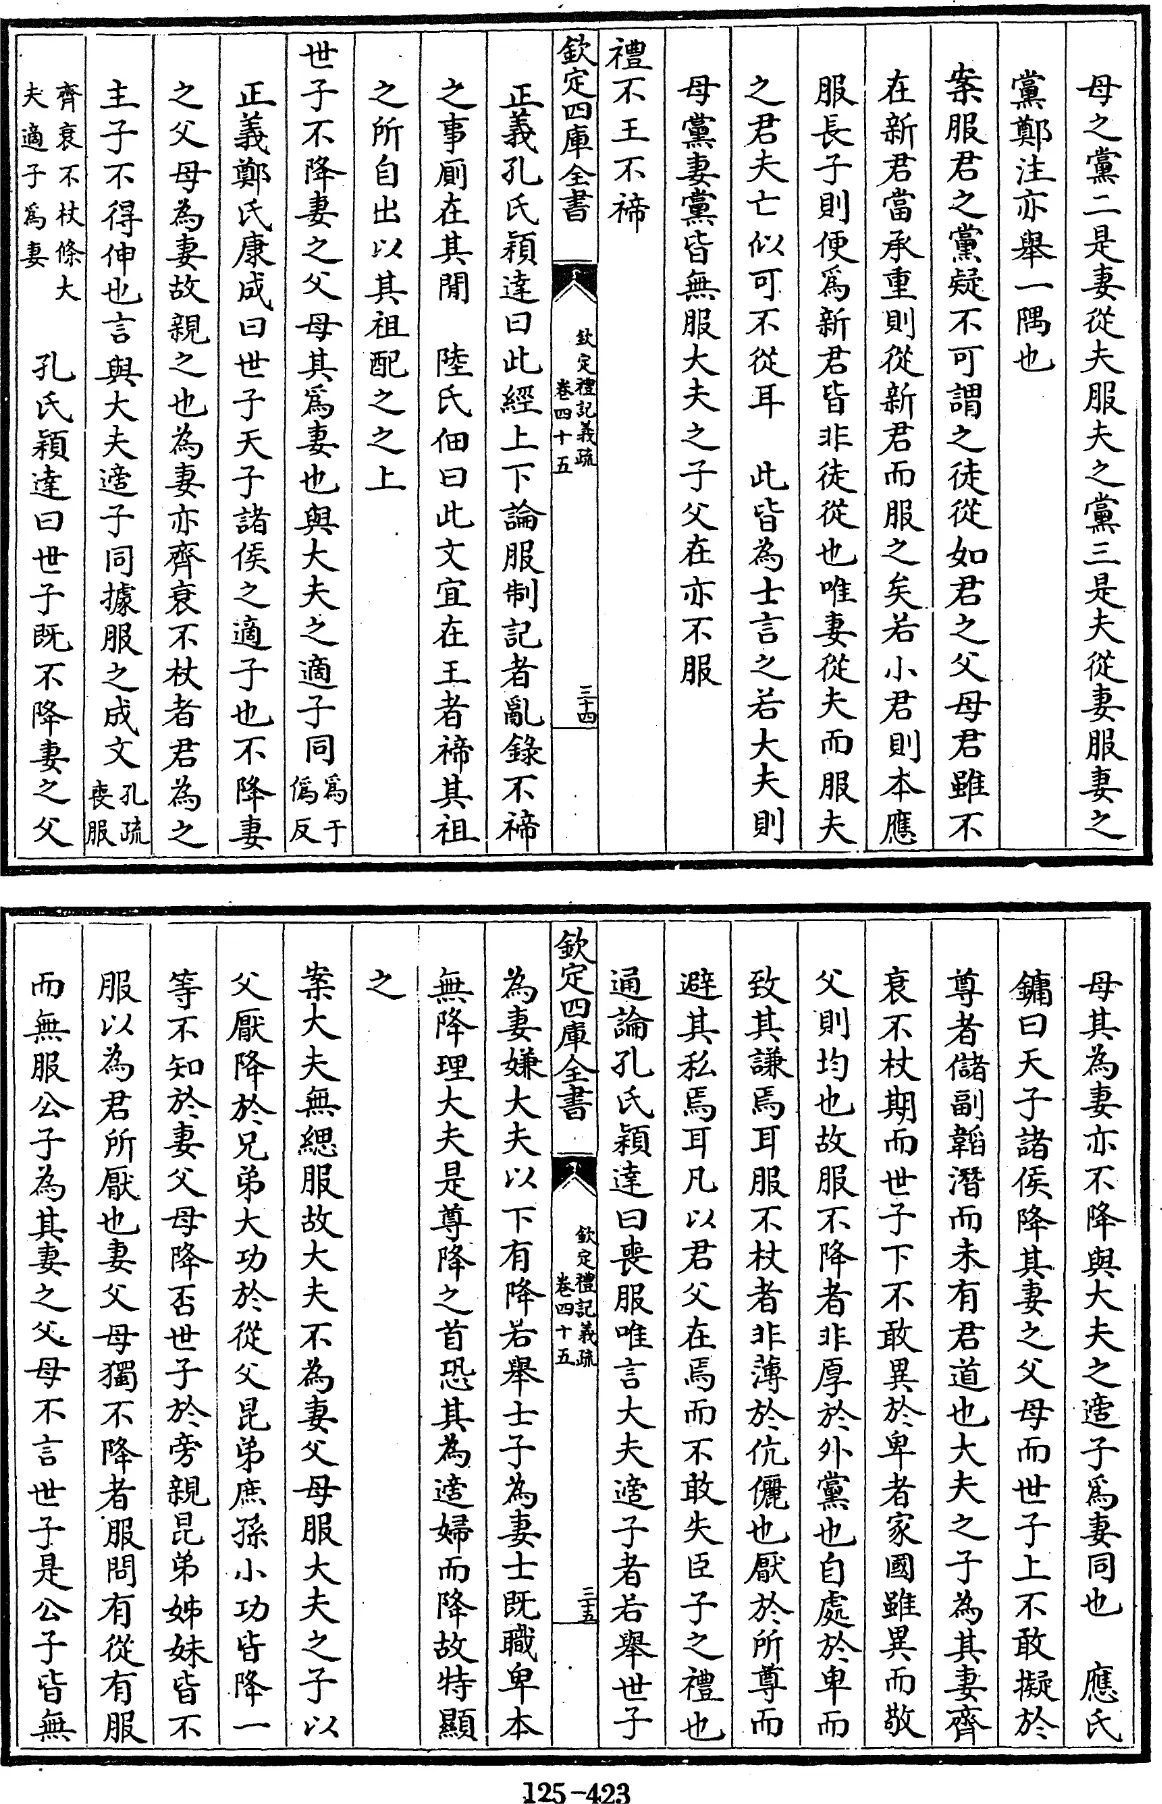 母之黨二是妻從夫服夫之黨三是夫從妻服妻之
黨鄭注亦舉一隅也
案服君之黨疑不可謂之徒從如君之父母君雖不
在新君當承重則從新君而服之矣若小君則本應
服長子則便爲新君皆非徒從也唯妻從夫而服夫
之君夫亡似可不從耳　此皆為士言之若大夫則
母黨妻黨皆無服大夫之子父在亦不服
禮不王不禘
欽定四庫全書
欽定禮記義疏
卷四十五
三十四
正義孔氏穎達曰此經上下論服制記者亂錄不禘
之事厠在其閒　陸氏佃曰此文宜在王者禘其祖
之所自出以其祖配之之上
世子不降妻之父母其爲妻也與大夫之適子同爲于
僞反
正義鄭氏康成曰世子天子諸侯之適子也不降妻
之父母為妻故親之也為妻亦齊衰不杖者君為之
主子不得伸也言與大夫適子同據服之成文孔疏
喪服
齊衰不杖條大
夫適子爲妻　孔氏穎達曰世子既不降妻之父
母其為妻亦不降與大夫之適子爲妻同也　應氏
鏞曰天子諸侯降其妻之父母而世子上不敢擬於
尊者儲副韜潛而未有君道也大夫之子為其妻齊
衰不杖期而世子下不敢異於卑者家國雖異而敬
父則均也故服不降者非厚於外黨也自處於卑而
致其謙焉耳服不杖者非薄於伉儷也厭於所尊而
避其私焉耳凡以君父在焉而不敢失臣子之禮也
通論孔氏穎達曰喪服唯言大夫適子者若舉世子
欽定四庫全書
欽定禮記義疏
卷四十五
三十五
為妻嫌大夫以下有降若舉士子為妻士既職卑本
無降理大夫是尊降之首恐其為適婦而降故特顯
之
案大夫無緦服故大夫不為妻父母服大夫之子以
父厭降於兄弟大功於從父昆弟庶孫小功皆降一
等不知於妻父母降否世子於旁親昆弟姊妹皆不
服以為君所厭也妻父母獨不降者服問有從有服
而無服公子為其妻之父母不言世子是公子皆無
125-423